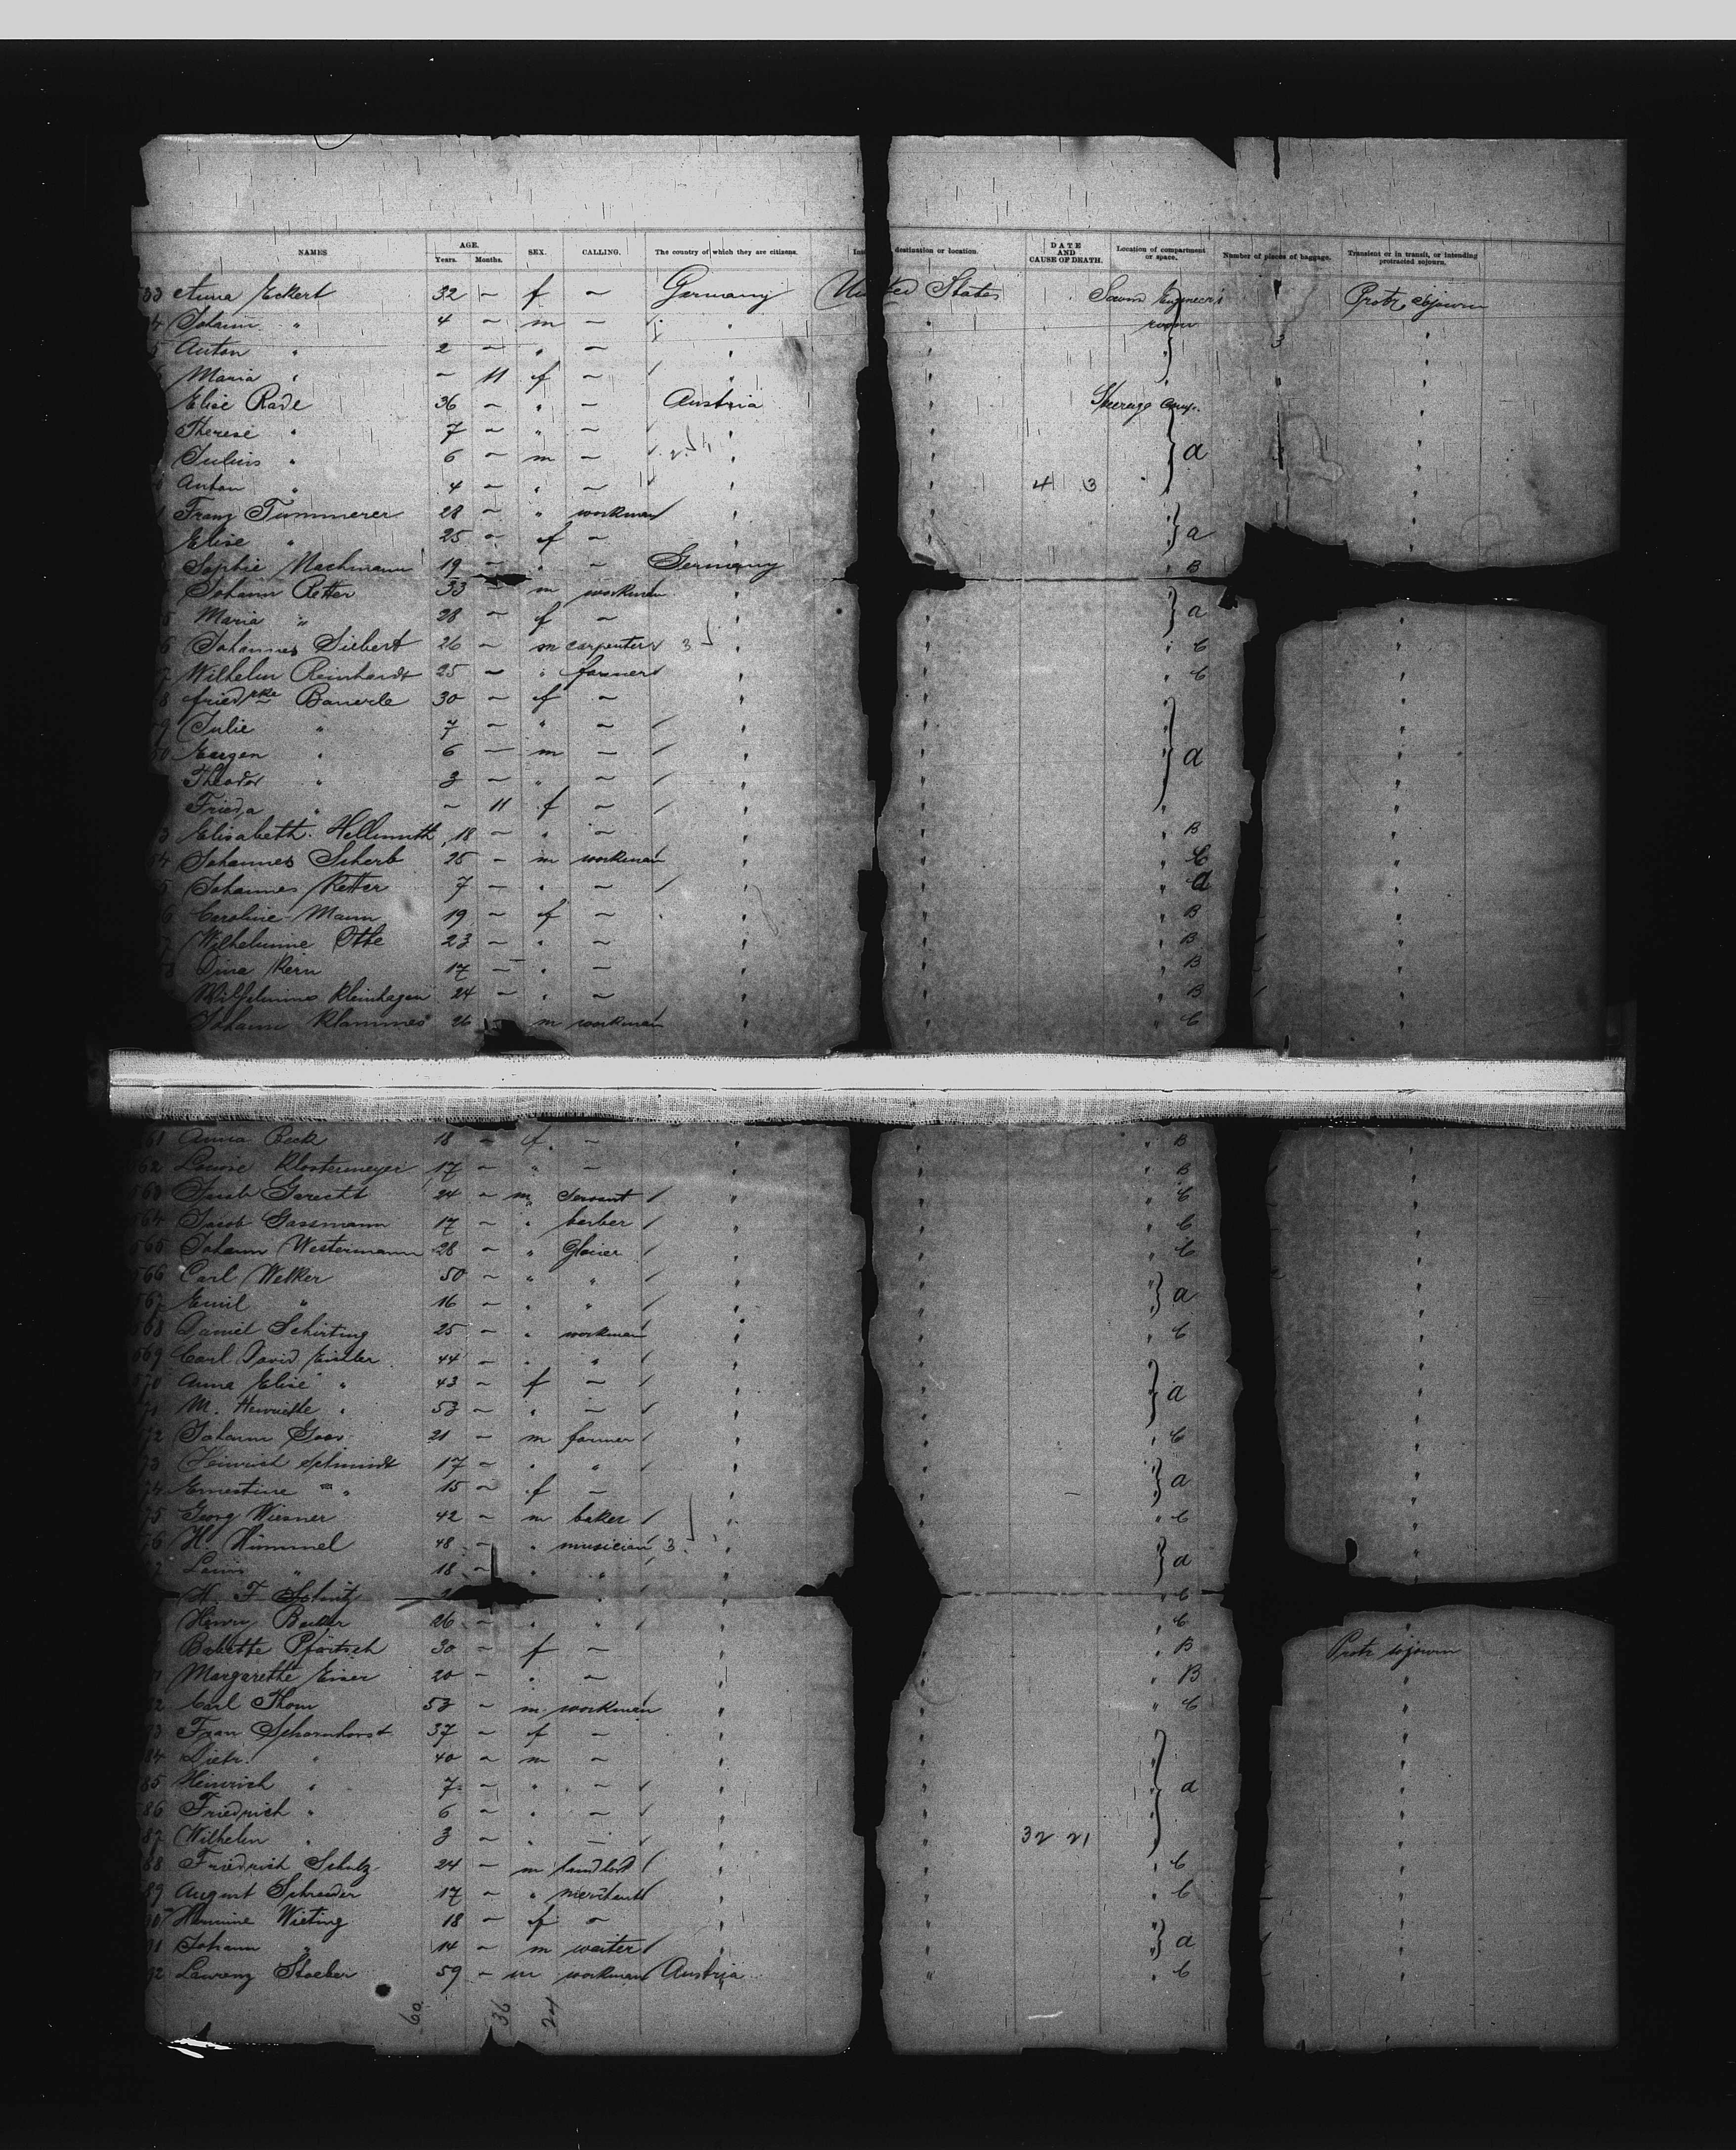 NAMES AGE. Years. Months. SEX. CALLING. The country of which they are citizens. destination or location. DATE AND CAUSE OF DEATH. Location of compartment or space. Number of pieces of baggage. Transient or in transit, or intending protracted sojourn.
33 Anna Eckert 32 – f – Germany United States Second Engineer's Protr. sojourn
4 Johann " 4 – m – " " room "
5 Anton " 2 – " – " " 3 "
Maria " – 11 f – " " "
Elise Rade 36 – " – Austria " Steerage Comp. "
Therese " 7 – " – " " "
Julius " 6 – m – " " a "
Anton " 4 – " – " " 4 3 "
Franz Tummerer 28 – " workman " " "
Elise " 25 – f – " " a "
Sophie Nachmann 19 – " – Germany " B
Johann Retter 33 – m workman " "
5 Maria " 28 – f – " " a "
6 Johannes Siebert 26 – m carpenter 3 " " " C "
7 Wilhelm Reinhardt 25 – " farmer " " " C "
8 Friedrke Bauerle 30 – f – " " "
49 Julie " 7 – " – " " "
50 Eugen " 6 – m – " " a "
Theodor " 3 – " – " " "
Frieda " – 11 f – " " "
3 Elisabeth Hellmuth 18 – " – " " " B "
54 Johannes Scherb 25 – m workman " " " C "
5 Johannes Retter 7 – " – " " " a "
6 Caroline Mann 19 – f – " " " B "
7 Wilhelmine Otte 23 – " – " " " B "
8 Dina Kern 17 – " – " " " B "
Wilhelmine Kleinhagen 24 – " – " " " B "
Johann Klammes 26 – m workman " " " C "
61 Anna Beck 18 – f – " " " B "
562 Louise Klostermeyer 17 – " – " " " B "
563 Jacob Garecht 24 – m servant " " " C "
564 Jacob Gassmann 17 – " barber " " " C "
565 Johann Westermann 28 – " glacier " " " C "
566 Carl Welker 50 – " " " " "
567 Emil " 16 – " " " " a "
568 Daniel Schirting 25 – " workman " " " C "
569 Carl David 44 – " " " " "
570 Anna Elise " 43 – f – " " a "
71 M. Henriette " 53 – " – " " "
572 Johann 21 – m farmer " " " C "
73 Heinrich Schmidt 17 – " " " " "
74 Ernestine " 15 – f – " " a "
75 Georg Wiesner 42 – m baker " " " C "
76 H. Hümmel 48 – " musician 3 " " "
7 Louis " 18 – " " " " a "
H. F. " " " " C
Henry Becker 26 – " " " " " C "
Babette Pfortsch 30 – f – " " " B Protr. sojourn
1 Margarethe Eiser 20 – " – " " " B "
82 Carl Thom 53 – m workman " " " C "
83 Fran Scharnhorst 37 – f – " " "
84 Dietr. " 40 – m – " " "
85 Heinrich " 7 – " – " " a "
586 Friedrich " 6 – " – " " "
87 Wilhelm " 3 – " – " " 32 21 "
88 Friedrich Schulz 24 – m landlord " " " C "
89 August Schroeder 17 – " merchant " " " C "
90 Hermine Wieting 18 – f – " " "
91 Johann " 14 – m waiter " " a "
92 Lawrenz Stoeber 59 – m workman Austria " " C "
60 36 24